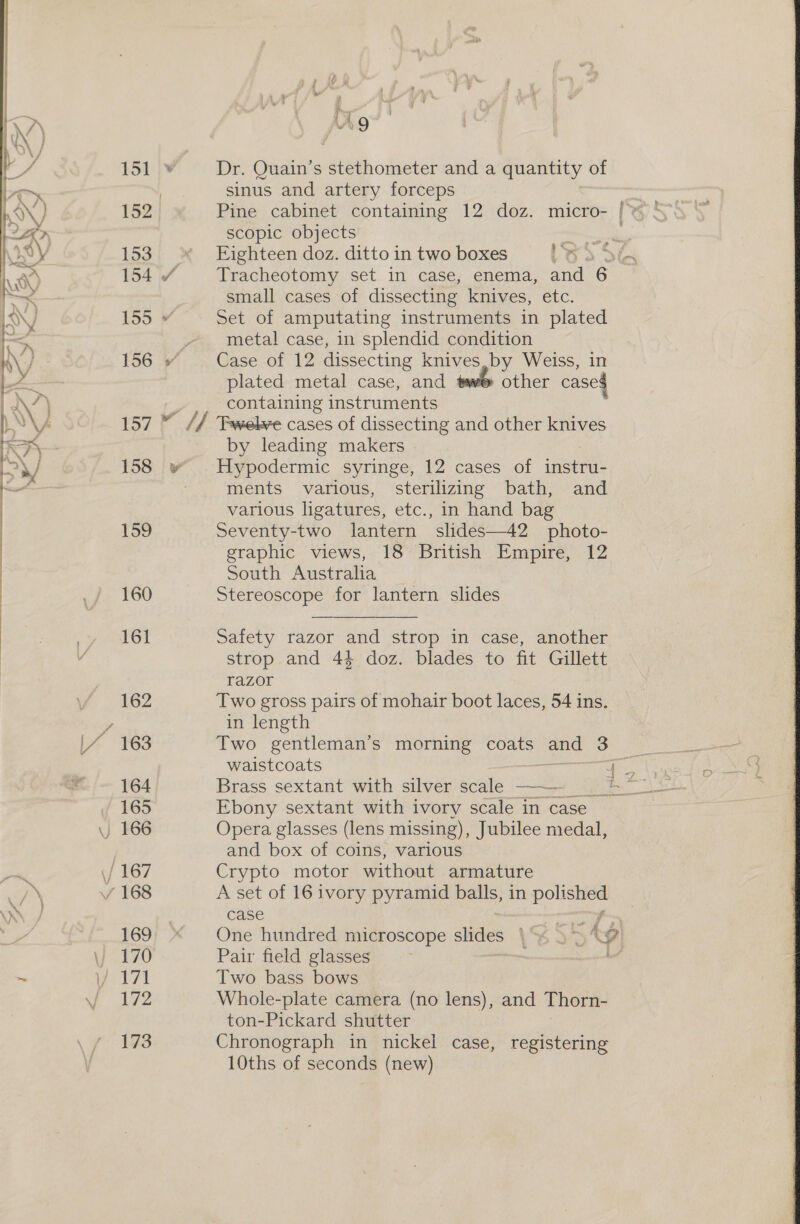 9
151 Dr. Quain's stethometer and a quantity of
sinus and artery forceps
152 Pine cabinet containing 12 doz. micro-
scopic objects
153 Eighteen doz. ditto in two boxes
154 Tracheotomy set in case, enema, and 6
small cases of dissecting knives, etc.
155 Set of amputating instruments in plated
metal case, in splendid condition
156 Case of 12 dissecting knives, by Weiss, in
plated metal case, and two other cases
containing instruments
157 11 Twelve cases of dissecting and other knives
by leading makers
158 Hypodermic syringe, 12 cases of instru-
ments various, sterilizing bath, and
various ligatures, etc., in hand bag
159 Seventy-two lantern slides—42 photo-
graphic views, 18 British Empire, 12
South Australia
160 Stereoscope for lantern slides
161 Safety razor and strop in case, another
strop and 4½ doz. blades to fit Gillett
razor
162 Two gross pairs of mohair boot laces, 54 ins.
in length
163 Two gentleman's morning coats and 3
waistcoats
164 Brass sextant with silver scale
165 Ebony sextant with ivory scale in case
166 Opera glasses (lens missing), Jubilee medal,
and box of coins, various
167 Crypto motor without armature
168 A set of 16 ivory pyramid balls, in polished
case
169 One hundred microscope slides
170 Pair field glasses
171 Two bass bows
172 Whole-plate camera (no lens), and Thorn-
ton-Pickard shutter
173 Chronograph in nickel case, registering
10ths of seconds (new)